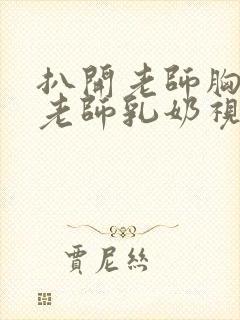 扒開老師胸
老師乳奶視
賈尼絲